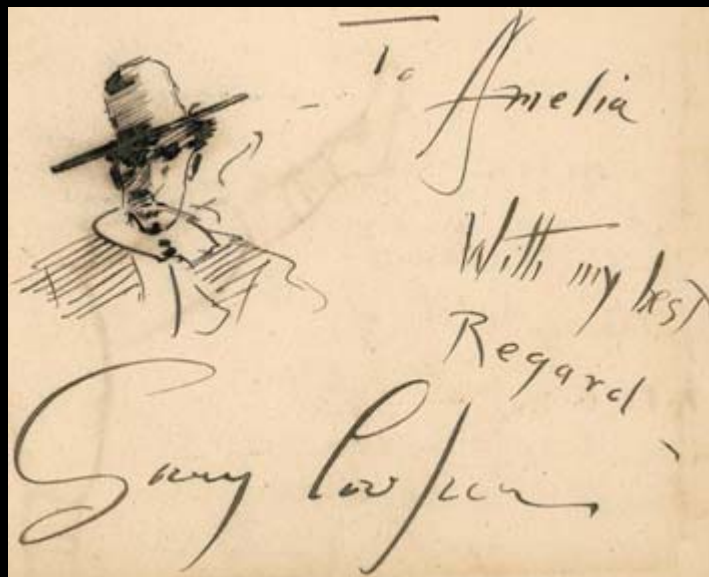 To Amelia
With my best
Regard
Gary Cooper